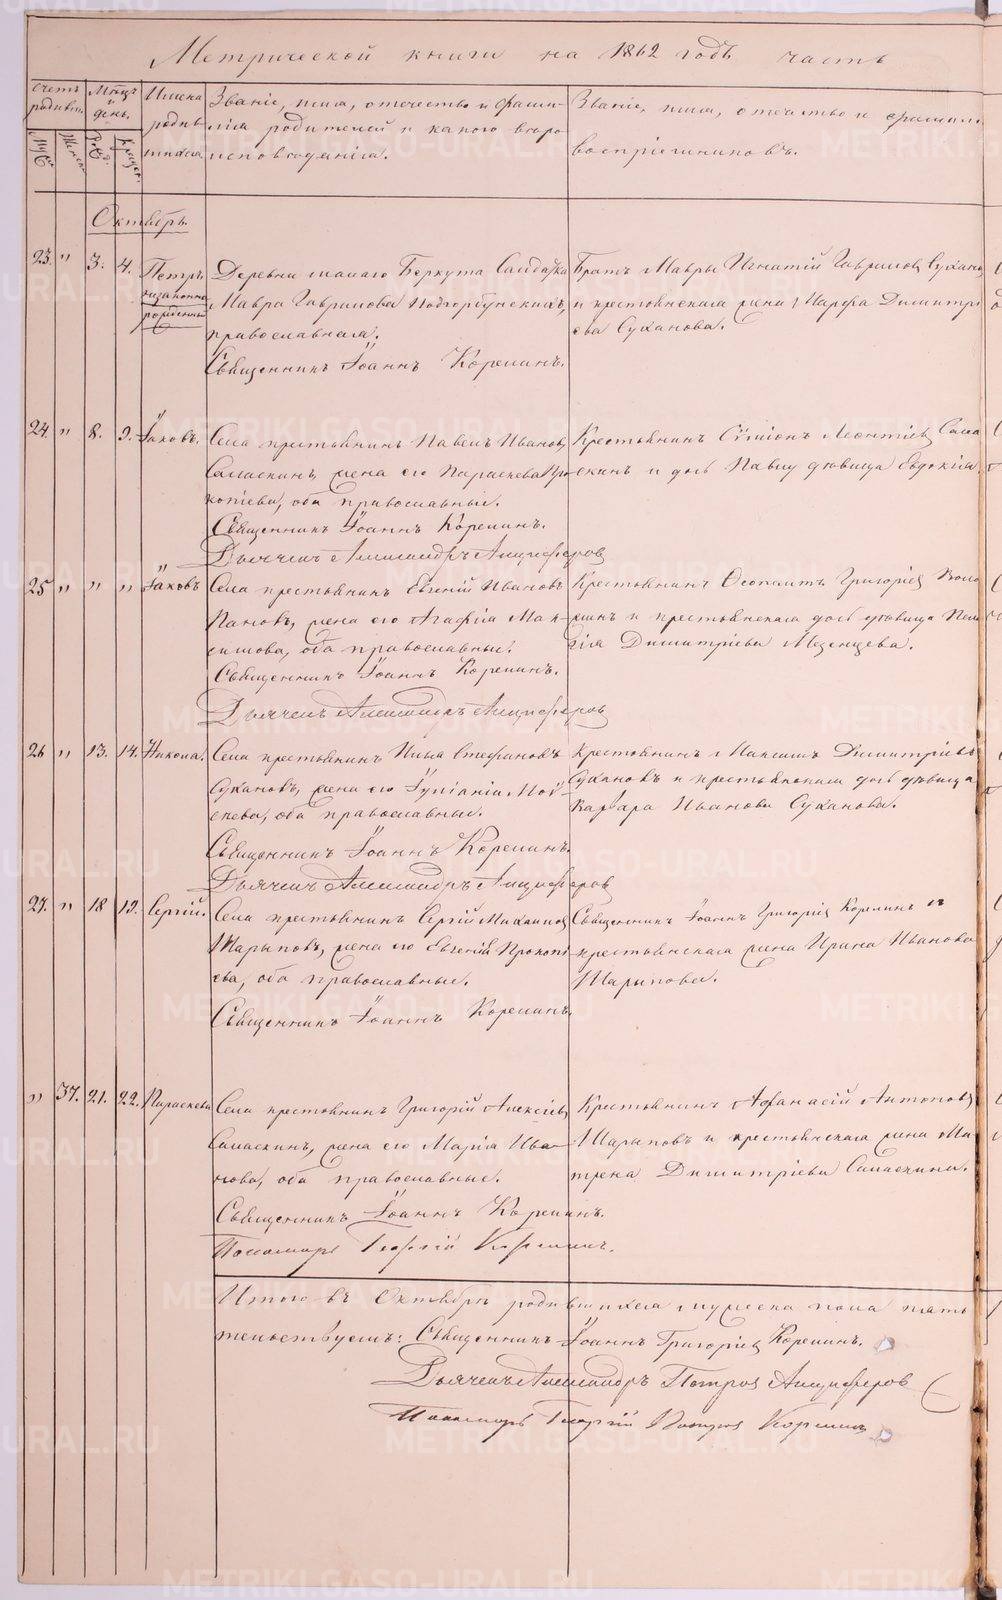 Метрической книги на 1862 годъ часть
Счетъ родивш.
Мцъ и день.
Имена родив-шихся
Звание, имя, отечество и фами-
лія родителей и какого веро-
исповеданія.
Званіе, имя, отчество и фамилія
воспріемниковъ.
Октябрь.
23. " 3. 4. Петръ незаконно рожденный
Деревни малаго Беркута Солдатка
Мавра Гаврилова Подгорбунскихъ,
православная.
Священникъ Іоаннъ Коремин.
Братъ Мавры Игнатій Гавриловъ Сухано
и крестьянская жена Марфа Димитрі
ева Суханова.
24. " 8. 9. Іаковъ.
Села крестьянинъ Павелъ Ивановъ
жена его Параскева Про-
копіева, оба православные.
Священникъ Іоаннъ
Дьячекъ Александръ Анциферовъ
Крестьянинъ Симіонъ Леонтіевъ
и дочь Павлу девица Евдокія.
25 " " " Іаковъ
Села крестьянинъ Евгеній Ивановъ
Пановъ, жена его Агафія Мак-
симова, оба православные.
Священникъ Іоаннъ
Дьячекъ Александръ Анциферовъ
Крестьянинъ Григоріев
и крестьянская дочь девица Пела
гія Димитріева Мезенцева.
26 " 13. 14. Никола.
Села крестьянинъ Илья Стефановъ
Сухановъ, жена его Іуліанія Мой-
сеева, оба православные.
Священникъ Іоаннъ
Дьячекъ Александръ Анциферовъ
Крестьянинъ Максимъ Димитріевъ
Сухановъ и крестьянская дочь девица
Варвара Иванова Суханова.
27. " 18 19. Сергій.
Села крестьянинъ Сергій Михаиловъ
Шарыповъ, жена его Евгенія Прокопі
ева, оба православные.
Священникъ Іоаннъ
Священникъ Іоаннъ Григоріев и
крестьянская жена Ирина Иванова
Шарыпова.
" 37. 21. 22. Параскева
Села крестьянинъ Григорій Алексіевъ
жена его Марія Ива-
нова, оба православные.
Священникъ Іоаннъ
Пономарь Георгій
Крестьянинъ Афанасій Антоповъ
Шарыповъ и крестьянская жена Ма
трена Димитріева
Итого въ Октябрѣ родившихся мужеска пола пять
тельствуемъ: Священникъ Іоаннъ Григоріев
Дьячекъ Александръ Петровъ Анциферовъ
Пономарь Георгій Петровъ
METRIKI.GASO-URAL.RU